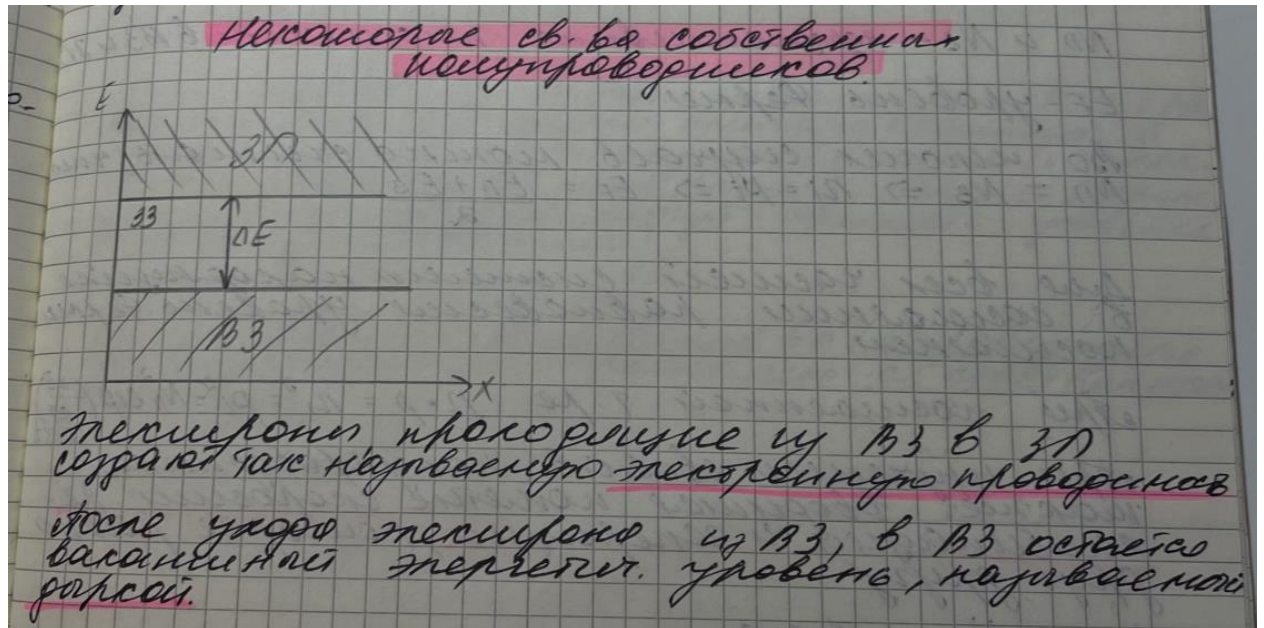 Некоторые св-ва собственных
полупроводников.
E
ЗП
ЗЗ
ΔE
ВЗ
x
Электроны, проходящие из ВЗ в ЗП
создают так называемую электронную проводимость
После ухода электрона из ВЗ, в ВЗ остаётся
вакантный энергетич. уровень, называемый
дыркой.